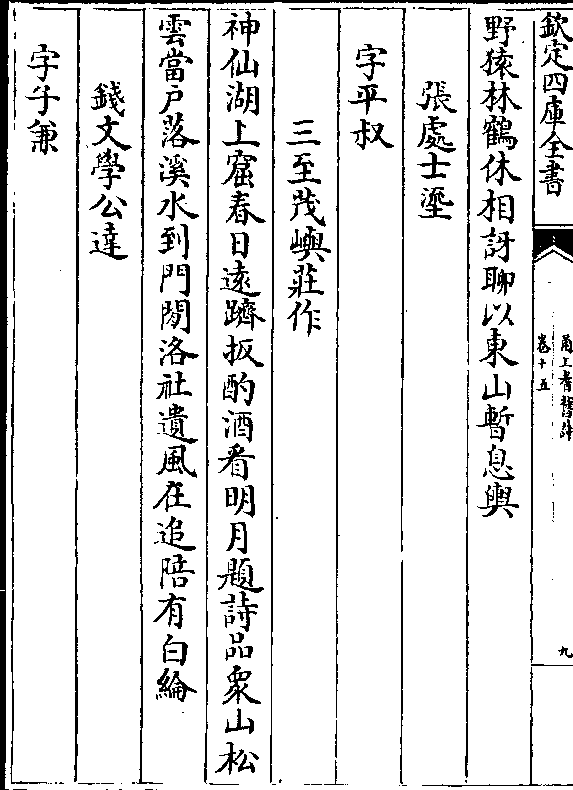 欽定四庫全書
甬上耆舊詩
卷十五
九
野猿林鶴休相訝聊以東山暫息輿
張處士瀅
字平叔
三至茂嶼莊作
神仙湖上窟春日遠躋扳酌酒看明月題詩品衆山松
雲當戸落溪水到門閒洛社遺風在追陪有白綸
錢文學公達
字千兼